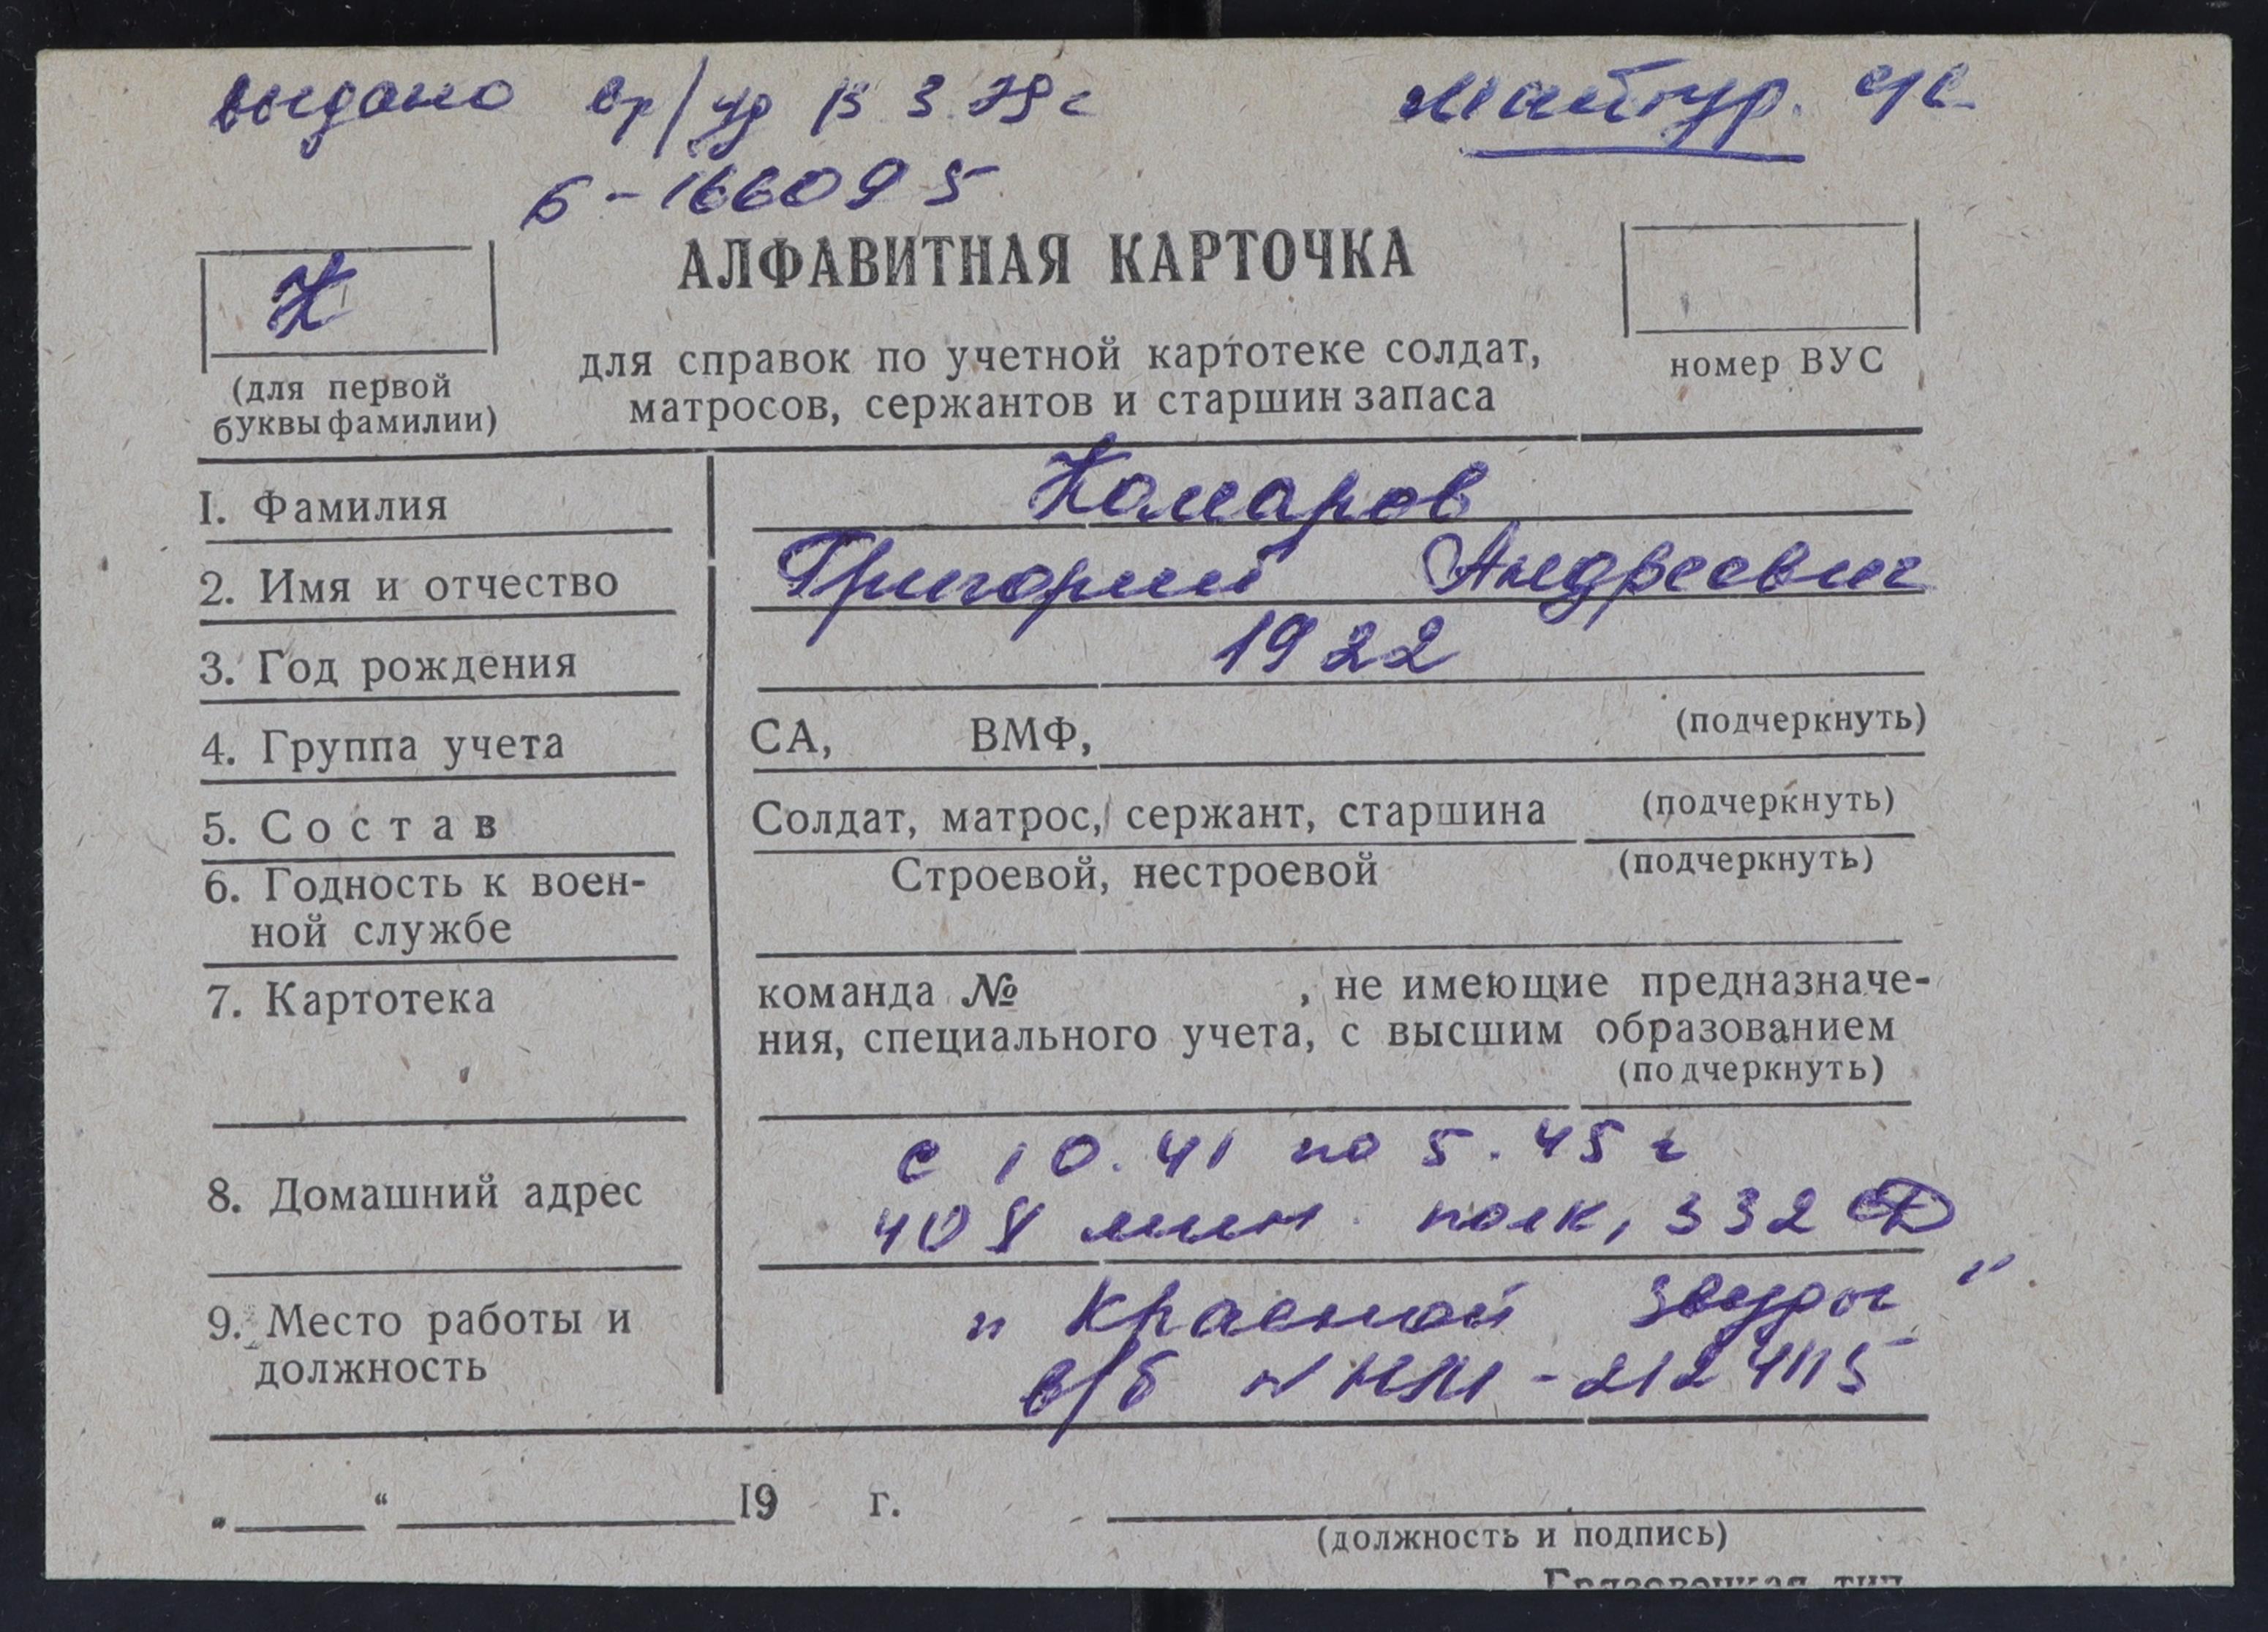 выдано вр/уд 13 3.79 г Майтур. с/с
Б-166095
К
АЛФАВИТНАЯ КАРТОЧКА
для справок по учетной картотеке солдат,
матросов, сержантов и старшин запаса
(для первой
буквы фамилии)
номер ВУС
1. Фамилия Комаров
2. Имя и отчество Григорий Андреевич
3. Год рождения 1922
4. Группа учета СА, ВМФ, (подчеркнуть)
5. Состав Солдат, матрос, сержант, старшина (подчеркнуть)
6. Годность к воен-
ной службе
Строевой, нестроевой (подчеркнуть)
7. Картотека
команда № , не имеющие предназначе-
ния, специального учета, с высшим образованием
(подчеркнуть)
с 10.41 по 5.45 г
8. Домашний адрес
408 мин. полк, 332 СД
9. Место работы и
должность
"Красной Звезды"
в/б № НМ-2124115
„ “ 19 г.
(должность и подпись)
Грязовецкая тип.